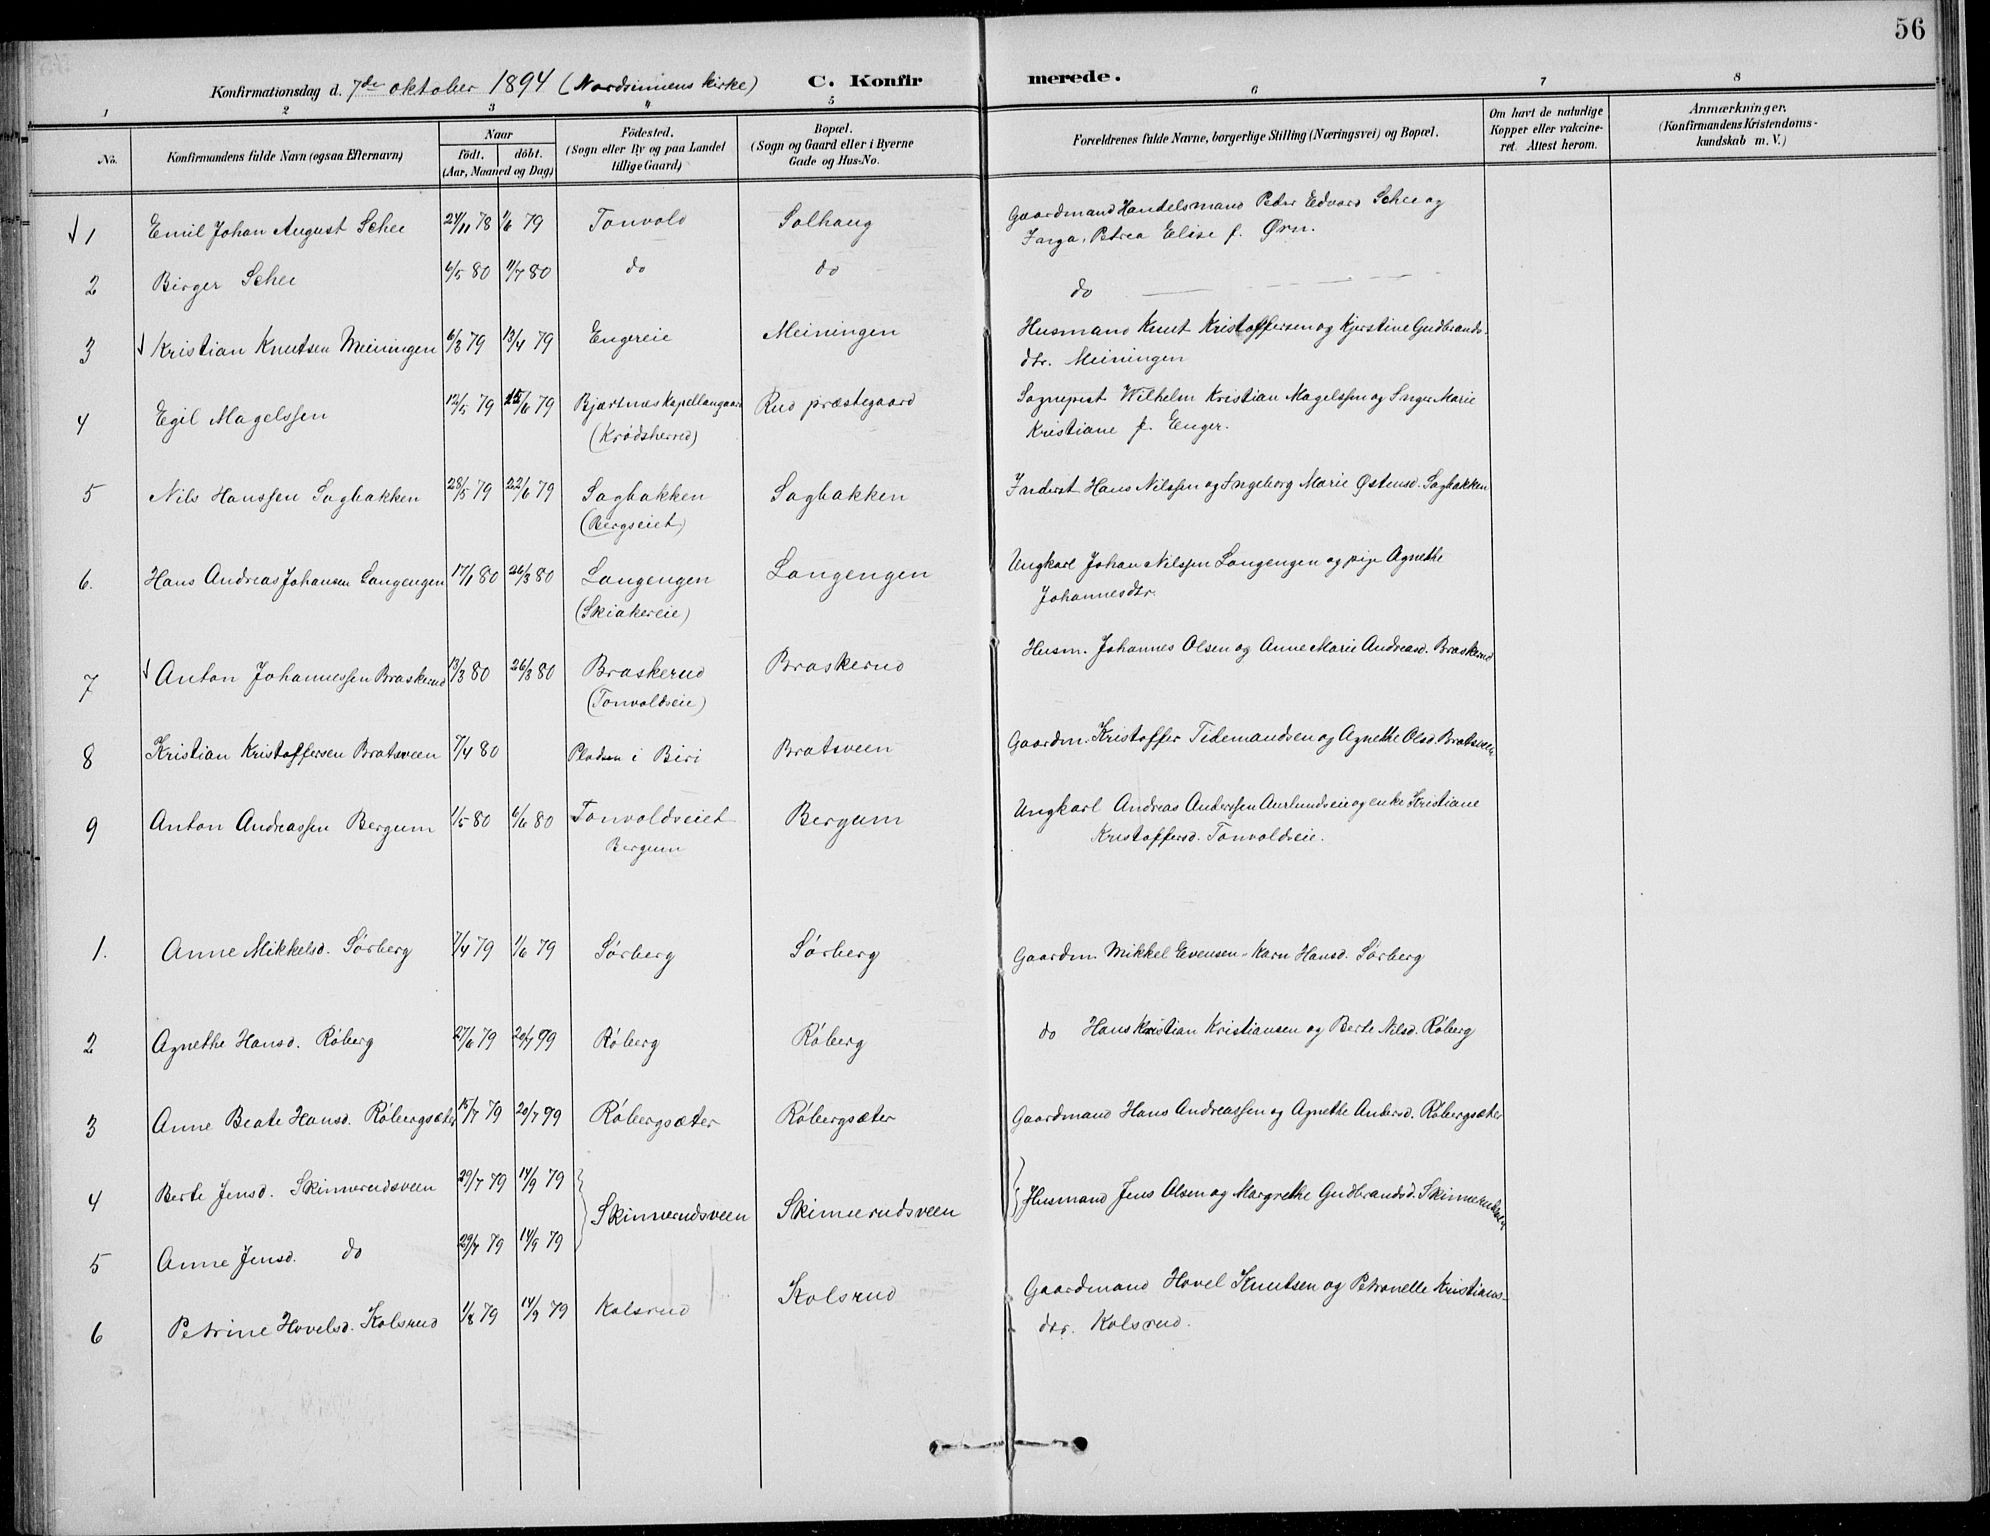 56
Konfirmationsdag d. 7de oktober 1894 (Nordsinnens kirke) C. Konfirmerede.
1 2 3 4 5 6 7 8
No. Konfirmandens fulde Navn (ogsaa Efternavn) Naar födt. döbt. (Aar, Maaned og Dag) Födested. (Sogn eller By og paa Landet tillige Gaard) Bopæl. (Sogn og Gaard eller i Byerne Gade og Hus-No. Forældrenes fulde Navne, borgerlige Stilling (Næringsvei) og Bopæl. Om havt de naturlige Kopper eller vakcineret. Attest herom. Anmærkninger. (Konfirmandens Kristendomskundskab m. V.)
1 Emil Johan August Schee 24/11 78 1/6 79 Tonvold Solhaug Gaardmand Handelsmand Peder Edvard Schee og
Inga Petrea Elise f. Ørn.
2 Birger Schee 6/5 80 11/7 80 do do do
3 Kristian Knutsen Meiningen 6/3 79 13/4 79 Engereie Meiningen Husmand Knut Kristoffersen og Kjerstine Gudbrands-
dtr. Meiningen
4 Egil Magelssen 12/5 79 15/6 79 Bjærtnæs Kapellangaard Rud præstegaard Sognepest Wilhelm Kristian Magelssen og Inger Marie
(Krødsherred) Kristiane f. Enger.
5 Nils Hanssen Sagbakken 28/5 79 22/6 79 Sagbakken Sagbakken Inderst Hans Nilssen og Ingeborg Marie Østensd. Sagbakken
(Bergseiet)
6. Hans Andreas Johansen Langengen 17/1 80 26/3 80 Langengen Langengen Ungkarl Johan Nilssen Langengen og pige Agnethe
(Skiakereie) Johannesdtr.
7 Anton Johannessen Braskerud 13/3 80 26/3 80 Braskerud Braskerud Husm. Johannes Olsen og Anne Marie Andreasd. Braskerud
(Tonvoldseie)
8 Kristian Kristoffersen Bratsveen 7/4 80 Pladsen i Biri Bratsveen Gaardm. Kristoffer Tidemandsen og Agnethe Olsd. Bratsveen
9 Anton Andreassen Bergum 1/5 80 6/6 80 Tonvoldseiet Bergum Ungkarl Andreas Anderssen Aurlundseie og enke Kristiane
Bergum Kristoffersd. Tonvoldseie.
1. Anne Mikkelsd. Sørberg 7/4 79 1/6 79 Sørberg Sørberg Gaardm. Mikkel Evensen - Karn Hansd. Sørberg
2 Agnethe Hansd. Røberg 27/6 79 20/7 79 Røberg Røberg do Hans Kristian Kristiansen og Berte Nilsd. Røberg
3 Anne Beate Hansd. Røbergsæter 15/7 79 20/7 79 Røbergsæter Røbergsæter Gaardmand Hans Andreassen og Agnethe Andersd. Røbergsæter
4 Berte Jensd. Skinnerudsveen 29/7 79 14/9 79 Skinnerudsveen Skinnerudsveen Husmand Jens Olsen og Margrethe Gudbrandsd. Skinnerudsveen
5 Anne Jensd. do 29/7 79 14/9 79
6 Petrine Hovelsd. Kolsrud 1/8 79 14/9 79 Kolsrud Kolsrud Gaardmand Hovel Knutsen og Petronelle Kristians-
dtr. Kolsrud.